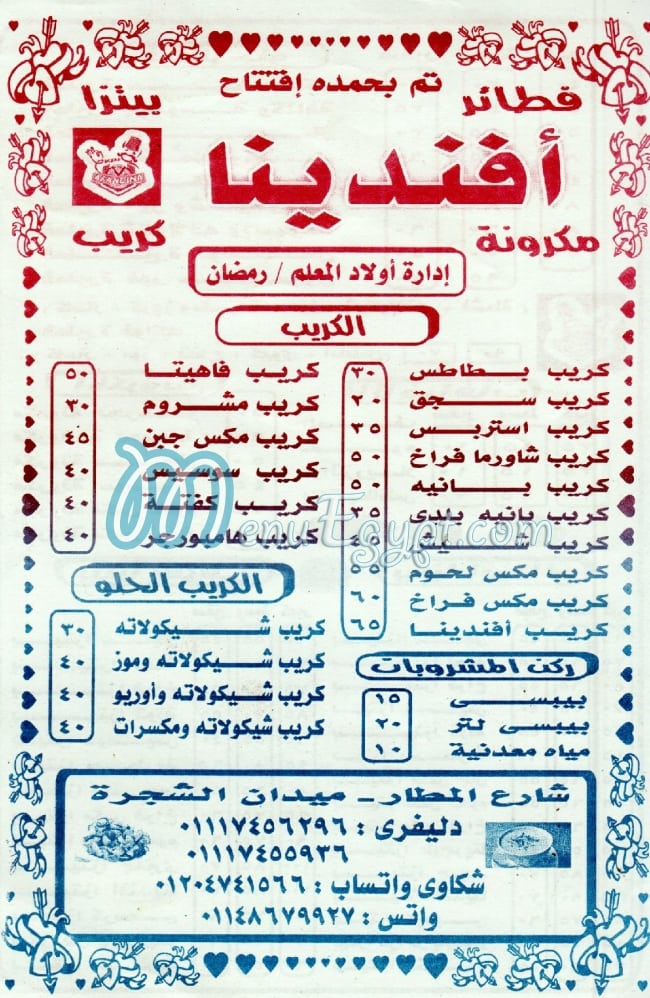 تم بحمده إفتتاح
فطائر
بيتزا
أفندينا
مكرونة
كريب
إدارة أولاد المعلم / رمضان
الكريب
كريب بطاطس ٣٠
كريب سجق ٢٠
كريب استربس ٣٥
كريب شاورما فراخ ٥٠
كريب بانيه ٥٠
كريب بانيه بلدى ٣٥
كريب شيش ٤٥
كريب مكس لحوم ٥٥
كريب مكس فراخ ٦٠
كريب أفندينا ٦٥
كريب فاهيتا ٥٠
كريب مشروم ٣٠
كريب مكس جبن ٤٥
كريب سوسيس ٤٠
كريب كفتة ٤٠
كريب هامبورجر ٤٠
الكريب الحلو
كريب شيكولاته ٣٠
كريب شيكولاته وموز ٤٠
كريب شيكولاته وأوريو ٤٠
كريب شيكولاته ومكسرات ٤٠
ركن المشروبات
بيبسى ١٥
بيبسى لتر ٢٠
مياه معدنية ١٠
شارع المطار - ميدان الشجرة
دليفرى : ٠١١١٧٤٥٦٢٩٦
٠١١١٧٤٥٥٩٣٦
شكاوى واتساب : ٠١٢٠٤٧٤١٥٦٦
واتس : ٠١١٤٨٦٧٩٩٢٧
MenuEgypt.com